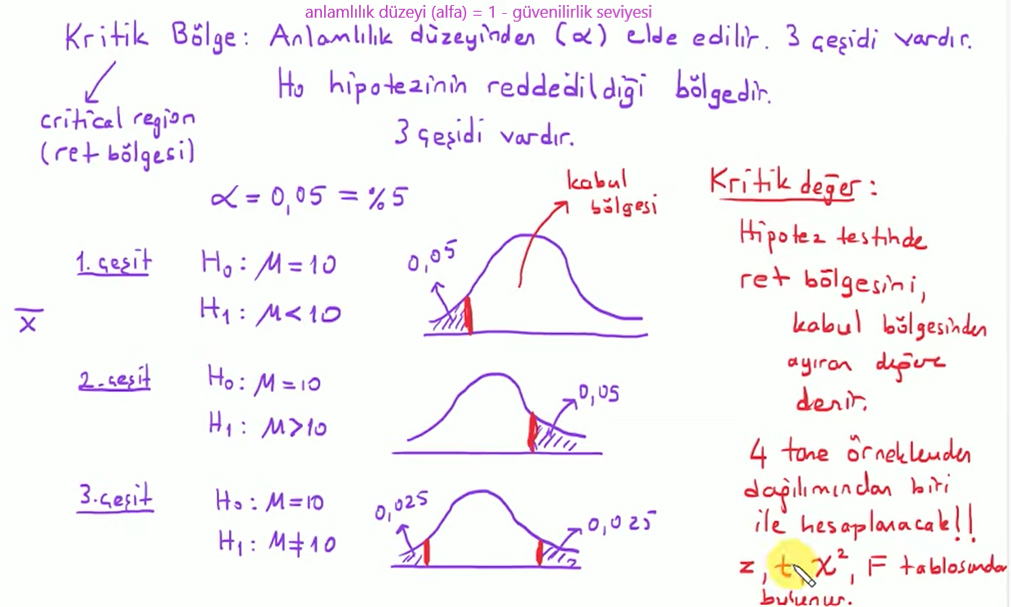 anlamlılık düzeyi (alfa) = 1 - güvenilirlik seviyesi
Kritik Bölge: Anlamlılık düzeyinden (α) elde edilir. 3 çeşidi vardır.
H₀ hipotezinin reddedildiği bölgedir.
critical region
(ret bölgesi)
3 çeşidi vardır.
α = 0,05 = %5
kabul
bölgesi
1. çeşit
H₀: M = 10
H₁: M < 10
0,05
x̄
2. çeşit
H₀: M = 10
H₁: M > 10
0,05
3. çeşit
H₀: M = 10
H₁: M ≠ 10
0,025
0,025
Kritik değer:
Hipotez testinde
ret bölgesini,
kabul bölgesinden
ayıran değere
denir.
4 tane örneklemden
dağılımından biri
ile hesaplanacak!!
z, t, x², F tablosundan
bulunur.